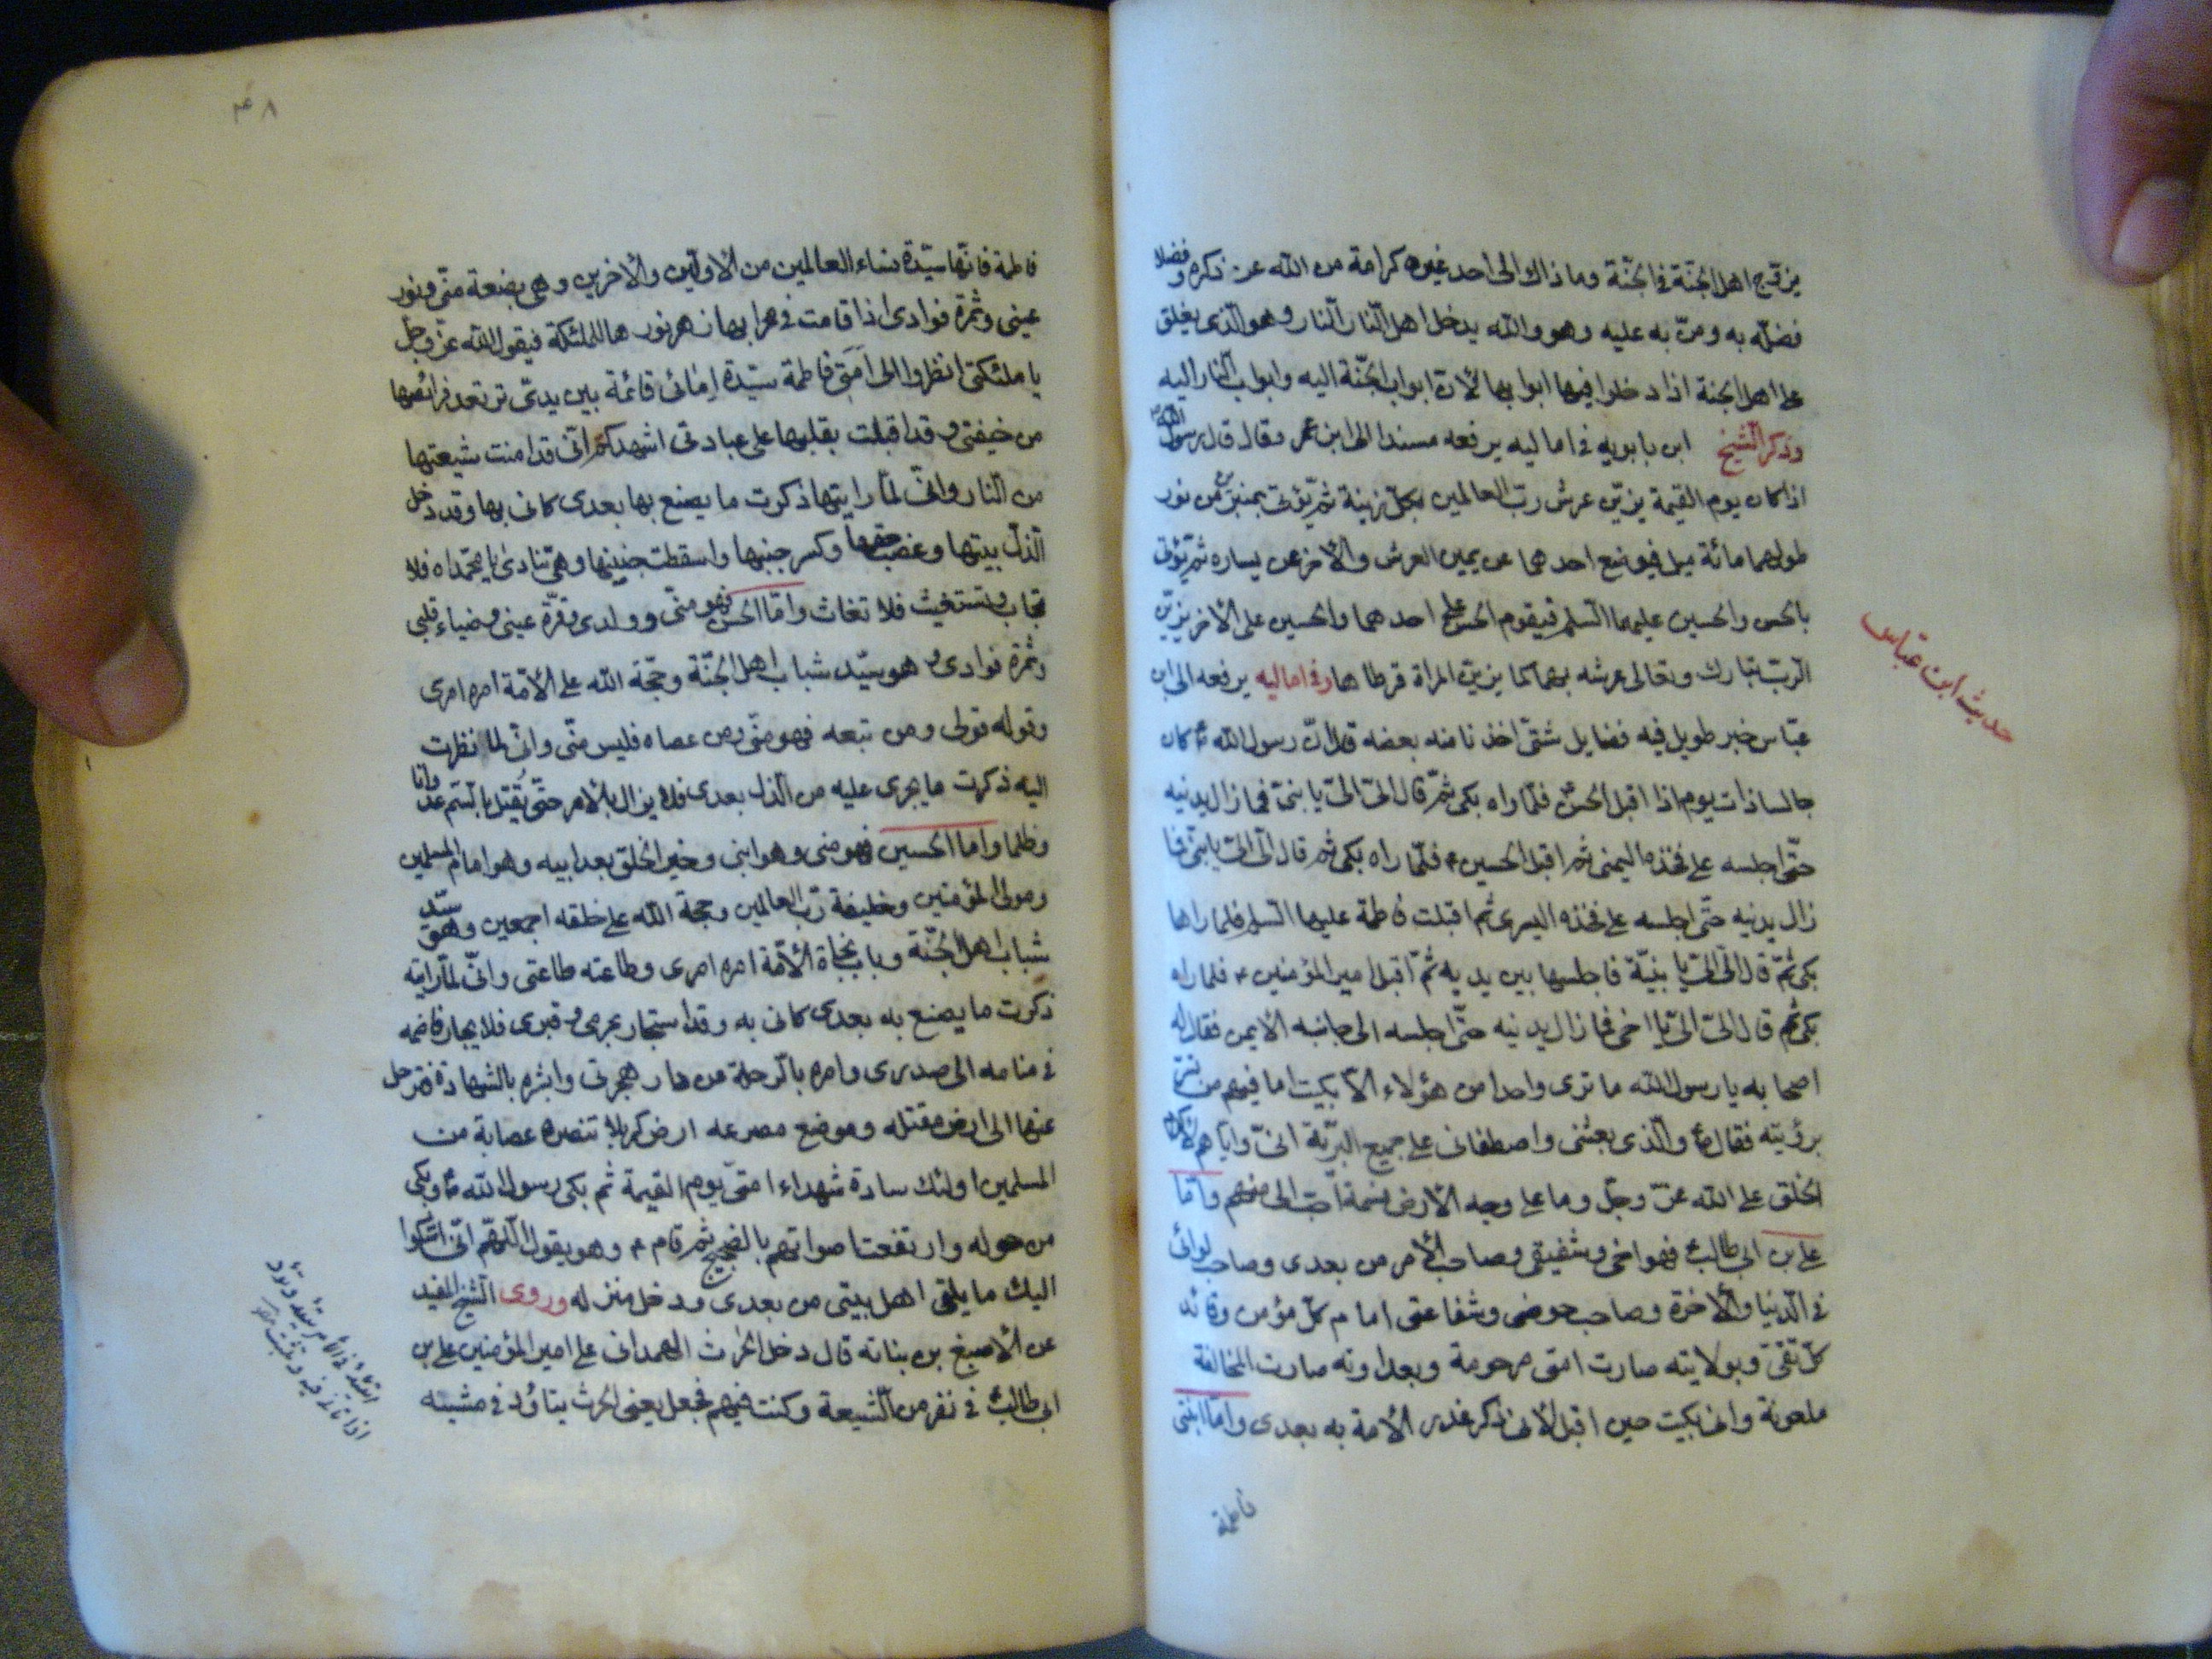 يزوّج اهل الجنّة في الجنّة وما ذاك الى احد غيره كرامة من الله عز ذكره وفضلا
فضله به ومنّ به عليه وهو والله يدخل اهل النّار النّار وهو الّذى يغلق
على اهل الجنة اذا دخلوا فيها ابوابها لانّ ابواب الجنّة اليه وابواب النّار اليه
وذكر الشيخ ابن بابويه في اماليه يرفعه مسندا الى ابن عمر وقال قال رسول الله
اذا كان يوم القيمة يزيّن عرش ربّ العالمين بكلّ زينة ثمّ يؤتى بمنبرين من نور
طولهما مائة ميل فيوضع احدهما عن يمين العرش والآخر عن يساره ثمّ يؤتى
بالحسن والحسين عليهما السّلم فيقوم الحسن على احدهما والحسين على الآخر يزيّن
الرّب تبارك وتعالى عرشه بهما كما يزيّن المراة قرطاها وفى اماليه يرفعه الى ابن
عبّاس خبر طويل فيه فضايل شتّى اخذنا منه بعضه قال انّ رسول الله ص كان
جالسا ذات يوم اذا اقبل الحسن فلمّا راه بكى ثمّ قال الىّ الىّ يا بنىّ فما زال يدنيه
حتّى اجلسه على فخذه اليمنى ثم اقبل الحسين ع فلمّا راه بكى ثم قال الىّ الىّ يا بنىّ فما
زال يدنيه حتّى اجلسه على فخذه اليسرى ثم اقبلت فاطمة عليها السلم فلما راها
بكى ثمّ قال الىّ الىّ يا بنيّة فاجلسها بين يديه ثمّ اقبل امير المؤمنين ع فلما راه
بكى ثم قال الىّ الىّ يا اخى فما زال يدنيه حتّى اجلسه الى جانبه الايمن فقال له
اصحابه يا رسول الله ما ترى واحدا من هؤلاء الّا بكيت اما فيهم من تسرّ
برؤيته فقال ص والّذى بعثنى واصطفانى على جميع البريّة انىّ وايّاهم لاكرم
الخلق على الله عزّ وجلّ وما على وجه الارض نسمة احبّ الى منهم وامّا
على بن ابى طالب ع فهو اخى وشفيقى وصاحب الأمر من بعدى وصاحب لوائى
في الدّنيا والآخرة وصاحب حوضى وشفاعتى امام كلّ مؤمن وقائد
كلّ تقىّ وبولايته صارت امتى مرحومة وبعداوته صارت المخالفة
ملعونة وانى بكيت حين اقبل لأنى ذكر غدر الأمة به بعدى وامّا ابنتى
فاطمة
حديث ابن عبّاس
۴۸
فاطمة فانّها سيّدة نساء العالمين من الأوّلين والآخرين وهى بضعة منّى ونور
عينى وثمرة فوادى اذا قامت في محرابها زهر نورها للملئكة فيقول الله عزّ وجلّ
يا ملئكتى انظروا الى امَتى فاطمة سيّدة إمائى قائمة بين يدىّ ترتعد فرائصها
من خيفتى وقد اقبلت بقلبها على عبادتى اشهدكم انّى قد امنت شيعتها
من النّار وانّى لمّا رايتها ذكرت ما يصنع بها بعدى كانى بها وقد دخل
الّذل بيتها وغصبت حقها وكسر جنبها واسقطت جنينها وهى تنادى يا محمّداه فلا
تجاب وتستغيث فلا تغاث وامّا الحسن فهو منّى وولدى وقرّة عينى وضياء قلبى
وثمرة فوادى وهو سيّد شباب اهل الجنّة وحجّة الله على الأمّة امره امرى
وقوله قولى ومن تبعه فهو منّى ومن عصاه فليس منّى وانّى لما نظرت
اليه ذكرت ما يجرى عليه من الّذل بعدى فلا يزال بالأمر حتّى يُقتل بالسّم عدوانا
وظلما واما الحسين فهو منى وهو ابنى وخير الخلق بعد ابيه وهو امام المسلمين
ومولى المؤمنين وخليفة ربّ العالمين وحجة الله على خلقه اجمعين وهو سيّد
شباب اهل الجنّة وباب نجاة الأمّة امره امرى وطاعته طاعتى وانّى لمّا رايته
ذكرت ما يصنع به بعدى كانى به وقد استجار بحرمى وقبرى فلا يجار فاضمه
في منامه الى صدرى وامره بالرحلة من دار هجرتى وابشره بالشهادة فترحل
عنها الى ارض مقتله وموضع مصرعه ارض كربلا تنصره عصابة من
المسلمين اولئك سادة شهداء امتى يوم القيمة ثم بكى رسول الله ص وبكى
من حوله وارتفعت اصواتهم بالضجيج ثم قام ع وهو يقول اللّهمّ انّى اشكوا
اليك ما يلقى اهل بيتى من بعدى ودخل منزله وروى الشيخ المفيد
عن الأصبغ بن بناته قال دخل الحارث الهمدانى على امير المؤمنين على بن
ابى طالب ع في نفر من الشّيعة وكنت فيهم فجعل يعنى الحرث يتأود في مشيته